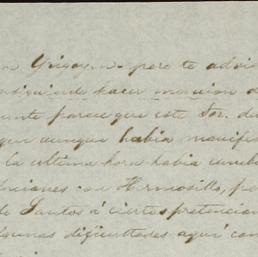 n Yrigoyen - pero te advie
nsiguiente hacer mencion d
ante parece que este Sor. de
que aunque habia manifes
la ultima hora habia camb
nciones con Hermosillo, po
de Santos á ciertas pretencion
algunas dificultades aquí con